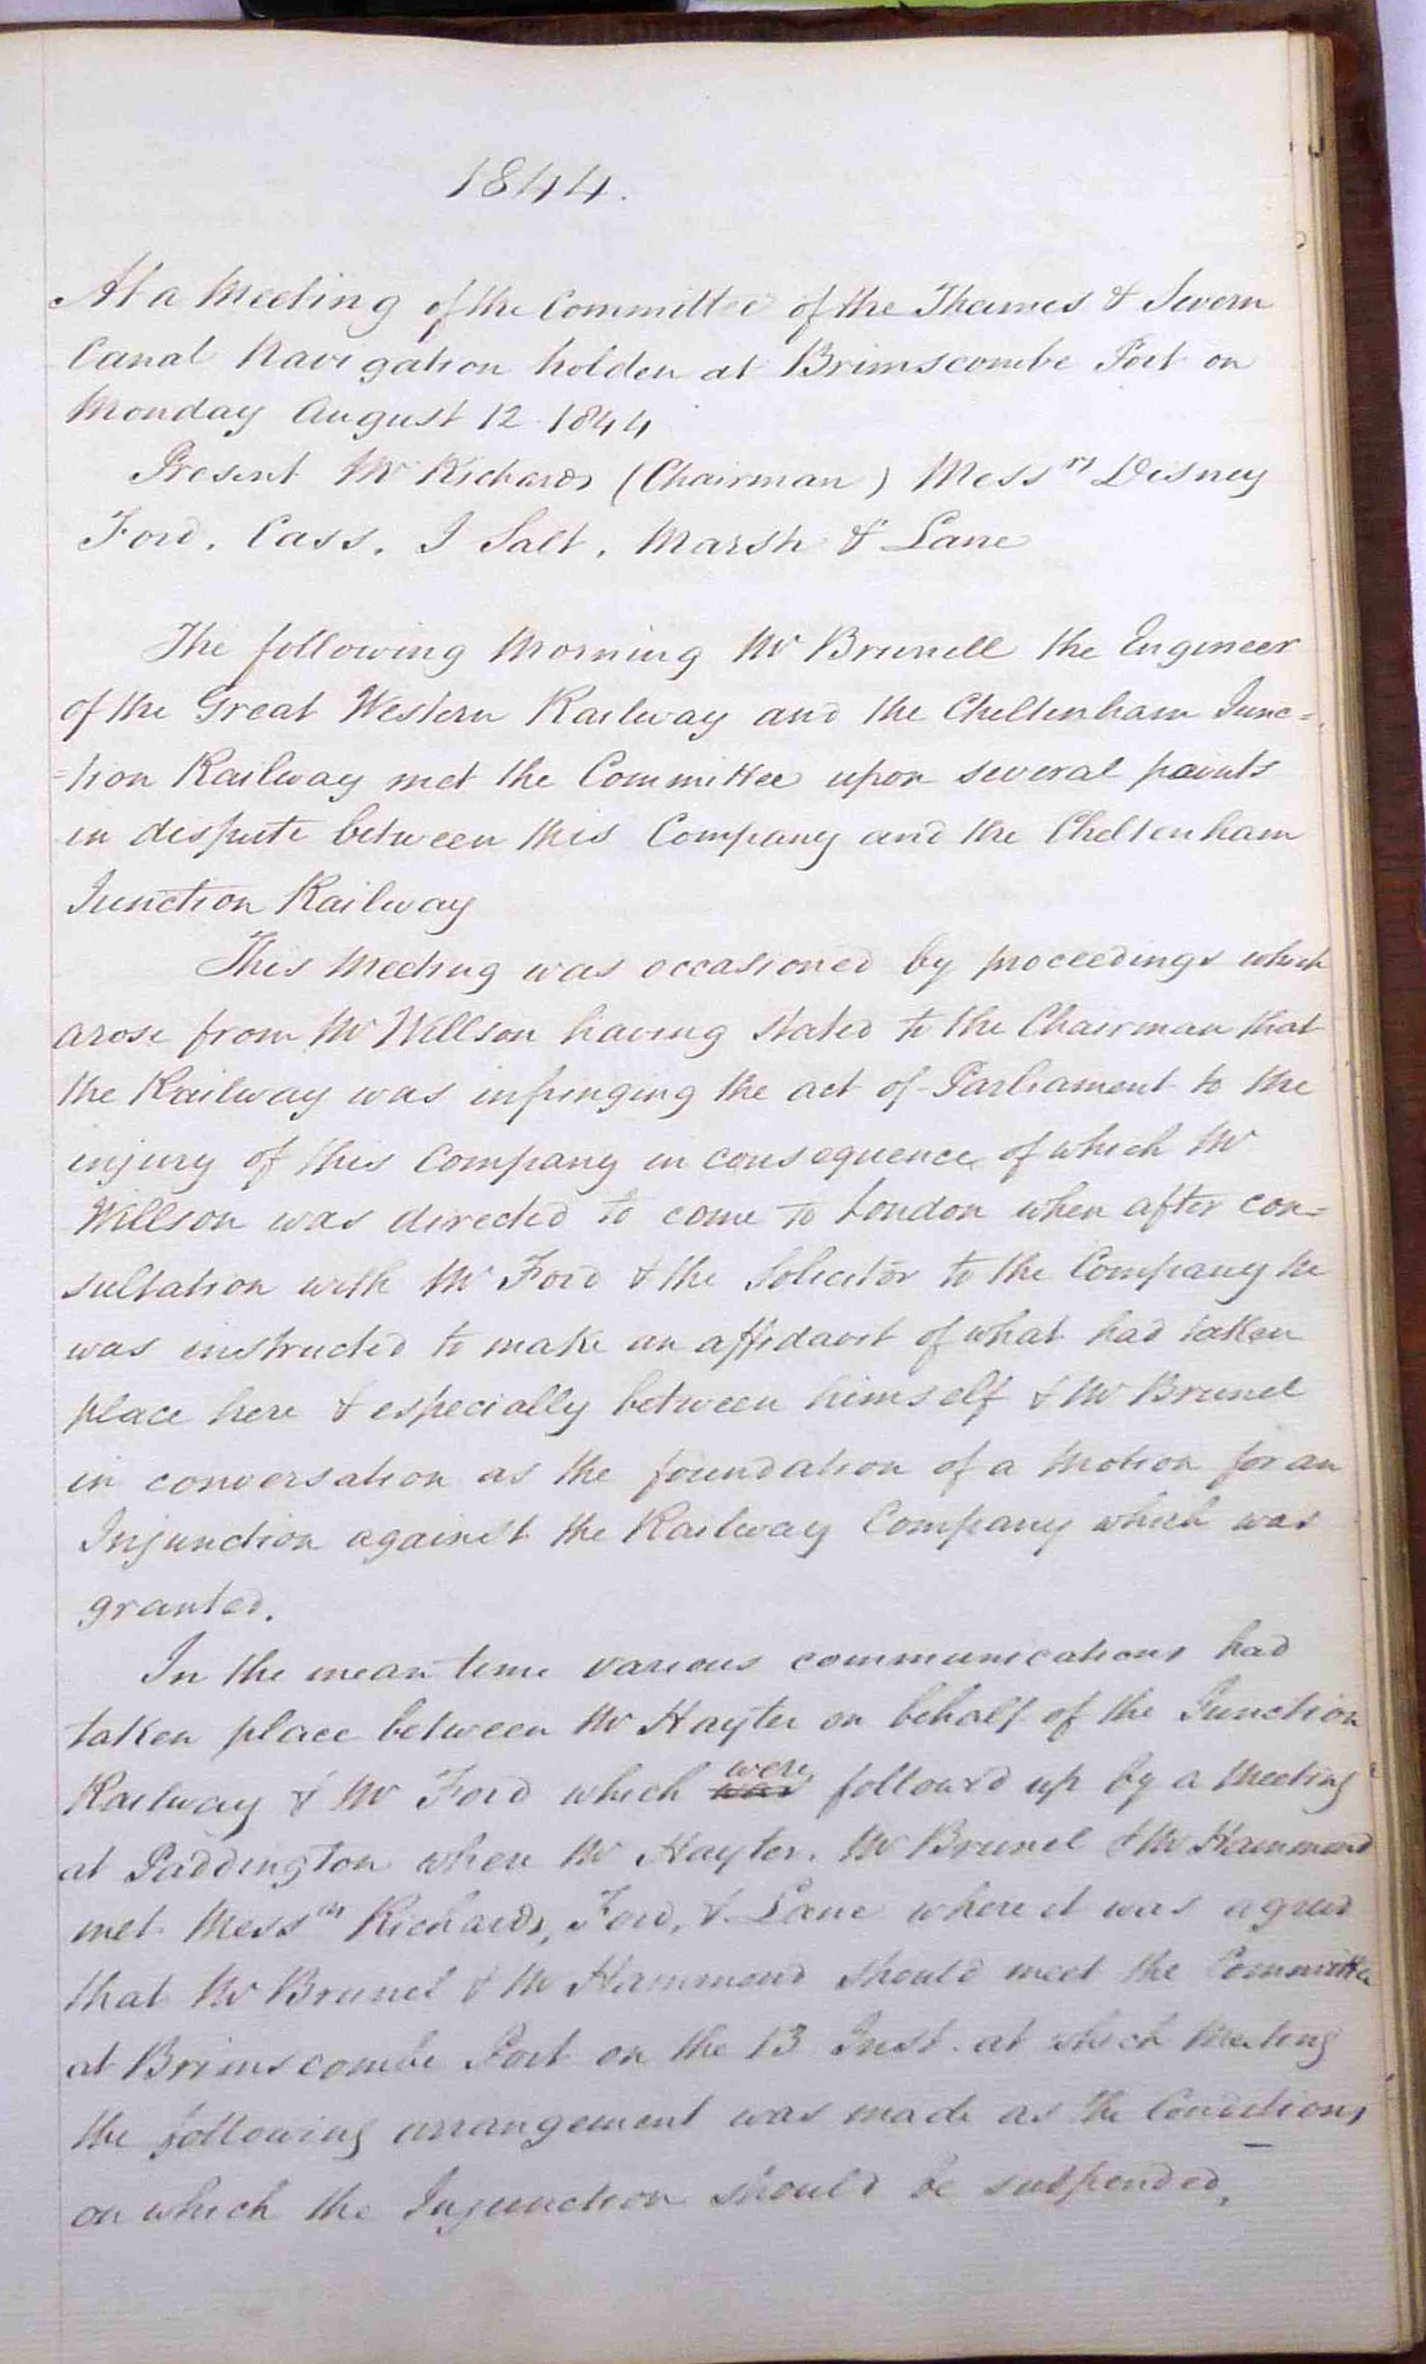 1844.
At a Meeting of the Committee of the Thames & Severn
Canal Navigation holden at Brimscombe Port on
Monday August 12 1844
Present Mr Richards (Chairman) Messrs Disney
Ford, Cass, J Salt, Marsh & Lane
The following Morning Mr Brunell the Engineer
of the Great Western Railway and the Cheltenham Junc=
=tion Railway met the Committee upon several points
in dispute between this Company and the Cheltenham
Junction Railway
This Meeting was occasioned by proceedings which
arose from Mr Willson having stated to the Chairman that
the Railway was infringing the act of Parliament to the
injury of this Company in consequence of which Mr
Willson was directed to come to London when after con=
sultation with Mr Ford & the Solicitor to the Company he
was instructed to make an affidavit of what had taken
place here & especially between himself & Mr Brunel
in conversation as the foundation of a Motion for an
Injunction against the Railway Company which was
granted.
In the mean time various communications had
taken place between Mr Hayter on behalf of the Junction
Railway & Mr Ford which was were followed up by a Meeting
at Paddington when Mr Hayter, Mr Brunel & Mr Hammond
met Messrs Richards, Ford, & Lane where it was agreed
that Mr Brunel & Mr Hammond should meet the Committee
at Brimscombe Port on the 13 Inst. at which Meeting
the following arrangement was made as the Conditions
on which the Injunction should be suspended,